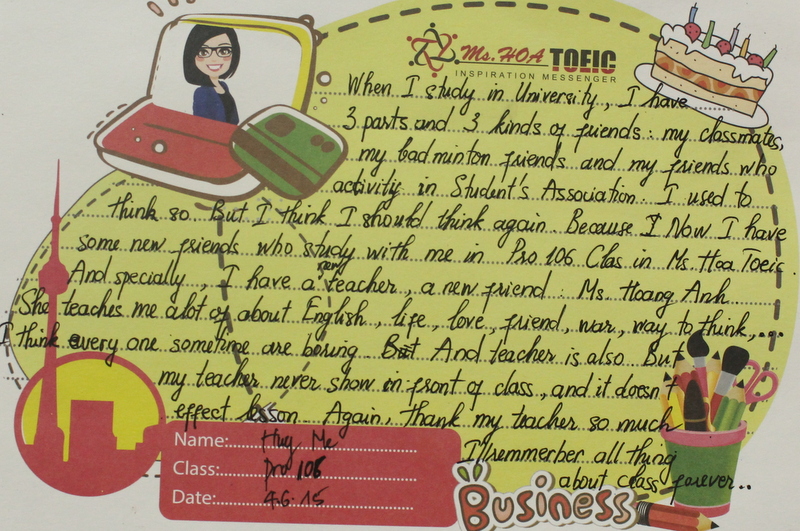 Ms. HOA TOEIC
INSPIRATION MESSENGER
When I study in University, I have
3 parts and 3 kinds of friends: my classmates,
my badminton friends and my friends who
activity in Student's Association. I used to
think so. But I think I should think again. Because I Now I have
some new friends who study with me in Pro 106 Clas in Ms Hoa Toeic.
And specially, I have a new teacher, a new friend: Ms. Hoang Anh
She teaches me alot of about English, life, love, friend, war, way to think,...
I think every one sometime are boring. But And teacher is also. But
my teacher never show in front of class, and it doesn't
effect lesson. Again, thank my teacher so much
I'll remmerber all thing
about class forever..
Name: Huy Me
Class: Pro 106
Date: 4.6.15
Business